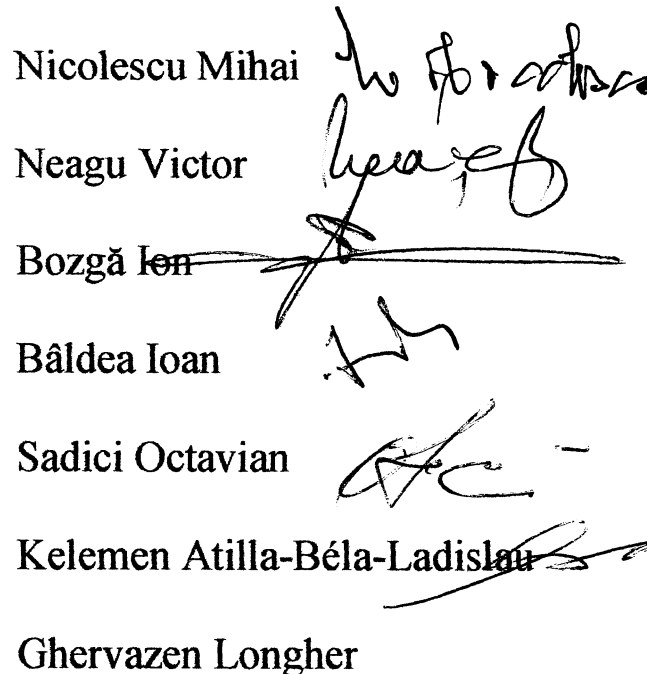 Nicolescu Mihai
Neagu Victor
Bozgă Ion
Bâldea Ioan
Sadici Octavian
Kelemen Atilla-Béla-Ladislau
Ghervazen Longher